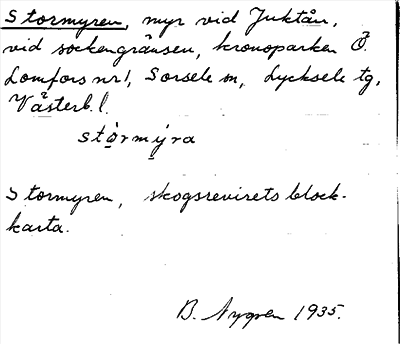 Stormyren, myr vid Juktån,
vid sockengränsen, kronoparken Ö.
Lomfors nr 1, Sorsele sn, Lycksele tg,
Västerb. l.
stòrmýra
Stormyren, skogsrevirets block-
karta.
B. Nygren 1935.